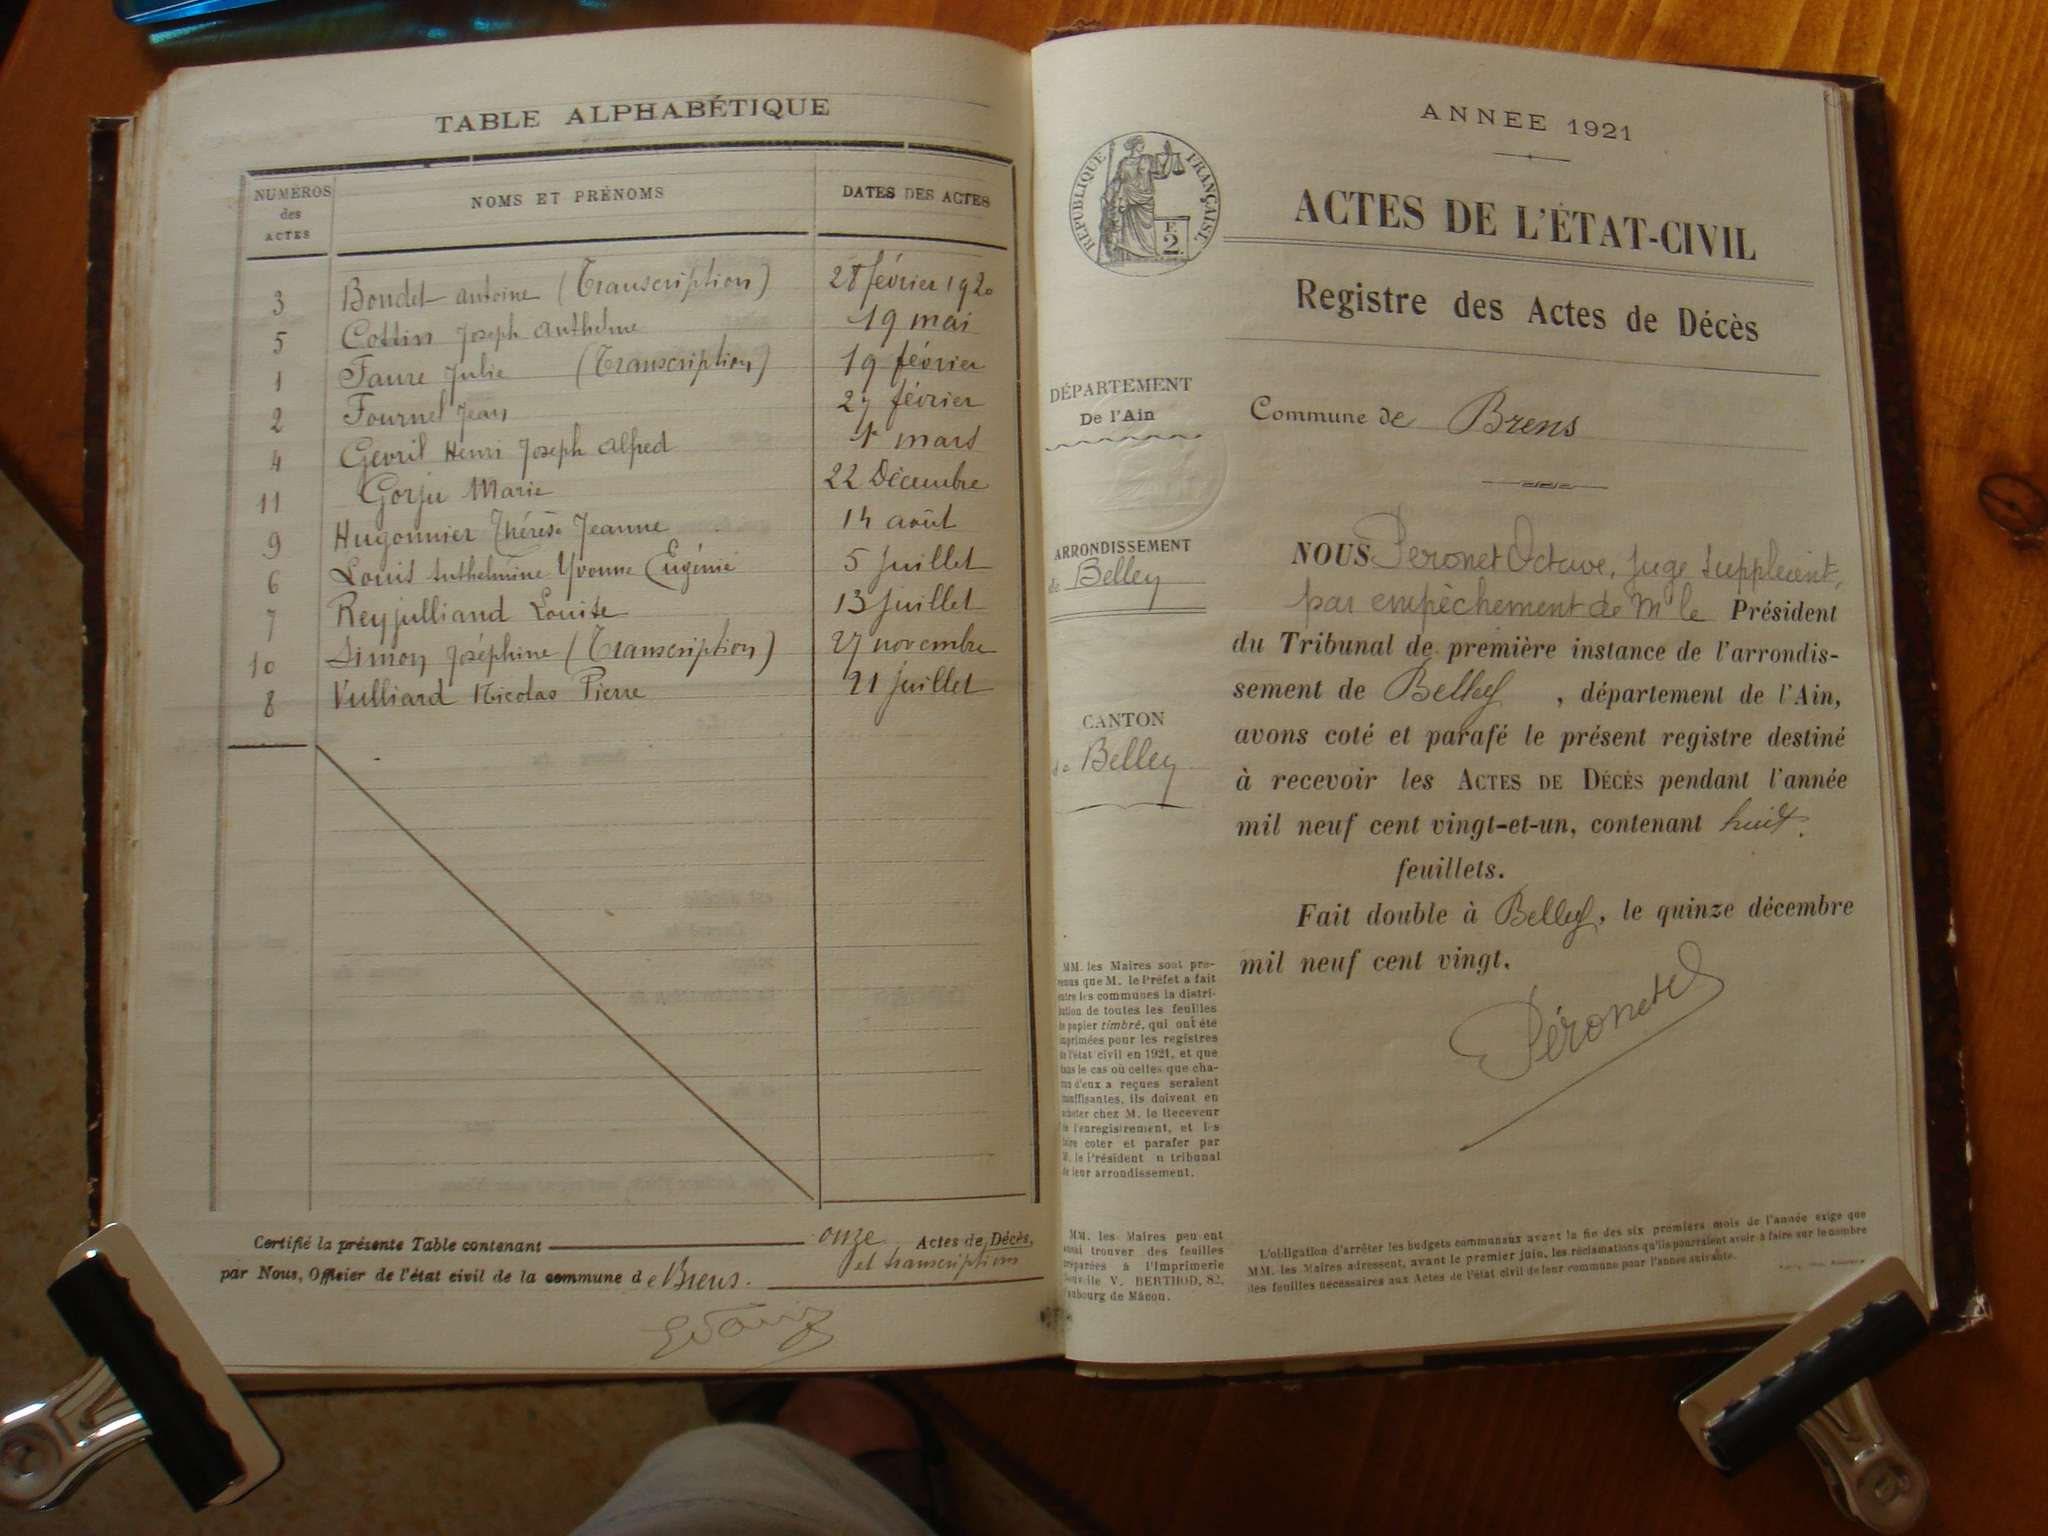 TABLE ALPHABÉTIQUE
NUMÉROS des ACTES NOMS ET PRÉNOMS DATES DES ACTES
3 Boudet Antoine (Transcription) 28 février 1920
5 Cottin Joseph Anthelme 19 mai
1 Faure Julie (Transcription) 19 février
2 Fournel Jean 27 février
4 Gevril Henri Joseph Alfred 1r mars
11 Gorju Marie 22 Décembre
9 Hugonnier Thérèse Jeanne 14 août
6 Louis Anthelmine Yvonne Eugénie 5 Juillet
7 Reyjulliand Louise 13 Juillet
10 Simon Joséphine (Transcription) 27 novembre
8 Vulliard Nicolas Pierre 21 Juillet
Certifié la présente Table contenant onze Actes de Décès,
et transcriptions
par Nous, Officier de l'état civil de la commune de Brens.
ANNEE 1921
RÉPUBLIQUE FRANÇAISE
F.
2
ACTES DE L'ÉTAT-CIVIL
Registre des Actes de Décès
DÉPARTEMENT
De l'Ain
Commune de Brens
ARRONDISSEMENT
de Belley
CANTON
de Belley
NOUS Peronet Octave, juge suppléant,
par empêchement de Mr le Président
du Tribunal de première instance de l'arrondis-
sement de Belley, département de l'Ain,
avons coté et parafé le présent registre destiné
à recevoir les ACTES DE DÉCÈS pendant l'année
mil neuf cent vingt-et-un, contenant huit
feuillets.
Fait double à Belley, le quinze décembre
mil neuf cent vingt.
Péronet
MM. les Maires sont pré-
venus que M. le Préfet a fait
entre les communes la distri-
bution de toutes les feuilles
de papier timbré, qui ont été
imprimées pour les registres
de l'état civil en 1921, et que
dans le cas où celles que cha-
cun d'eux a reçues seraient
insuffisantes, ils doivent en
acheter chez M. le Receveur
de l'enregistrement, et les
faire coter et parafer par
M. le Président du tribunal
de leur arrondissement.
MM. les Maires peuvent
aussi trouver des feuilles
préparées à l'Imprimerie
Nouvelle V. BERTHOD, 82,
faubourg de Mâcon.
L'obligation d'arrêter les budgets communaux avant la fin des six premiers mois de l'année exige que
MM. les Maires adressent, avant le premier juin, les réclamations qu'ils pourraient avoir à faire sur le nombre
des feuilles nécessaires aux Actes de l'état civil de leur commune pour l'année suivante.